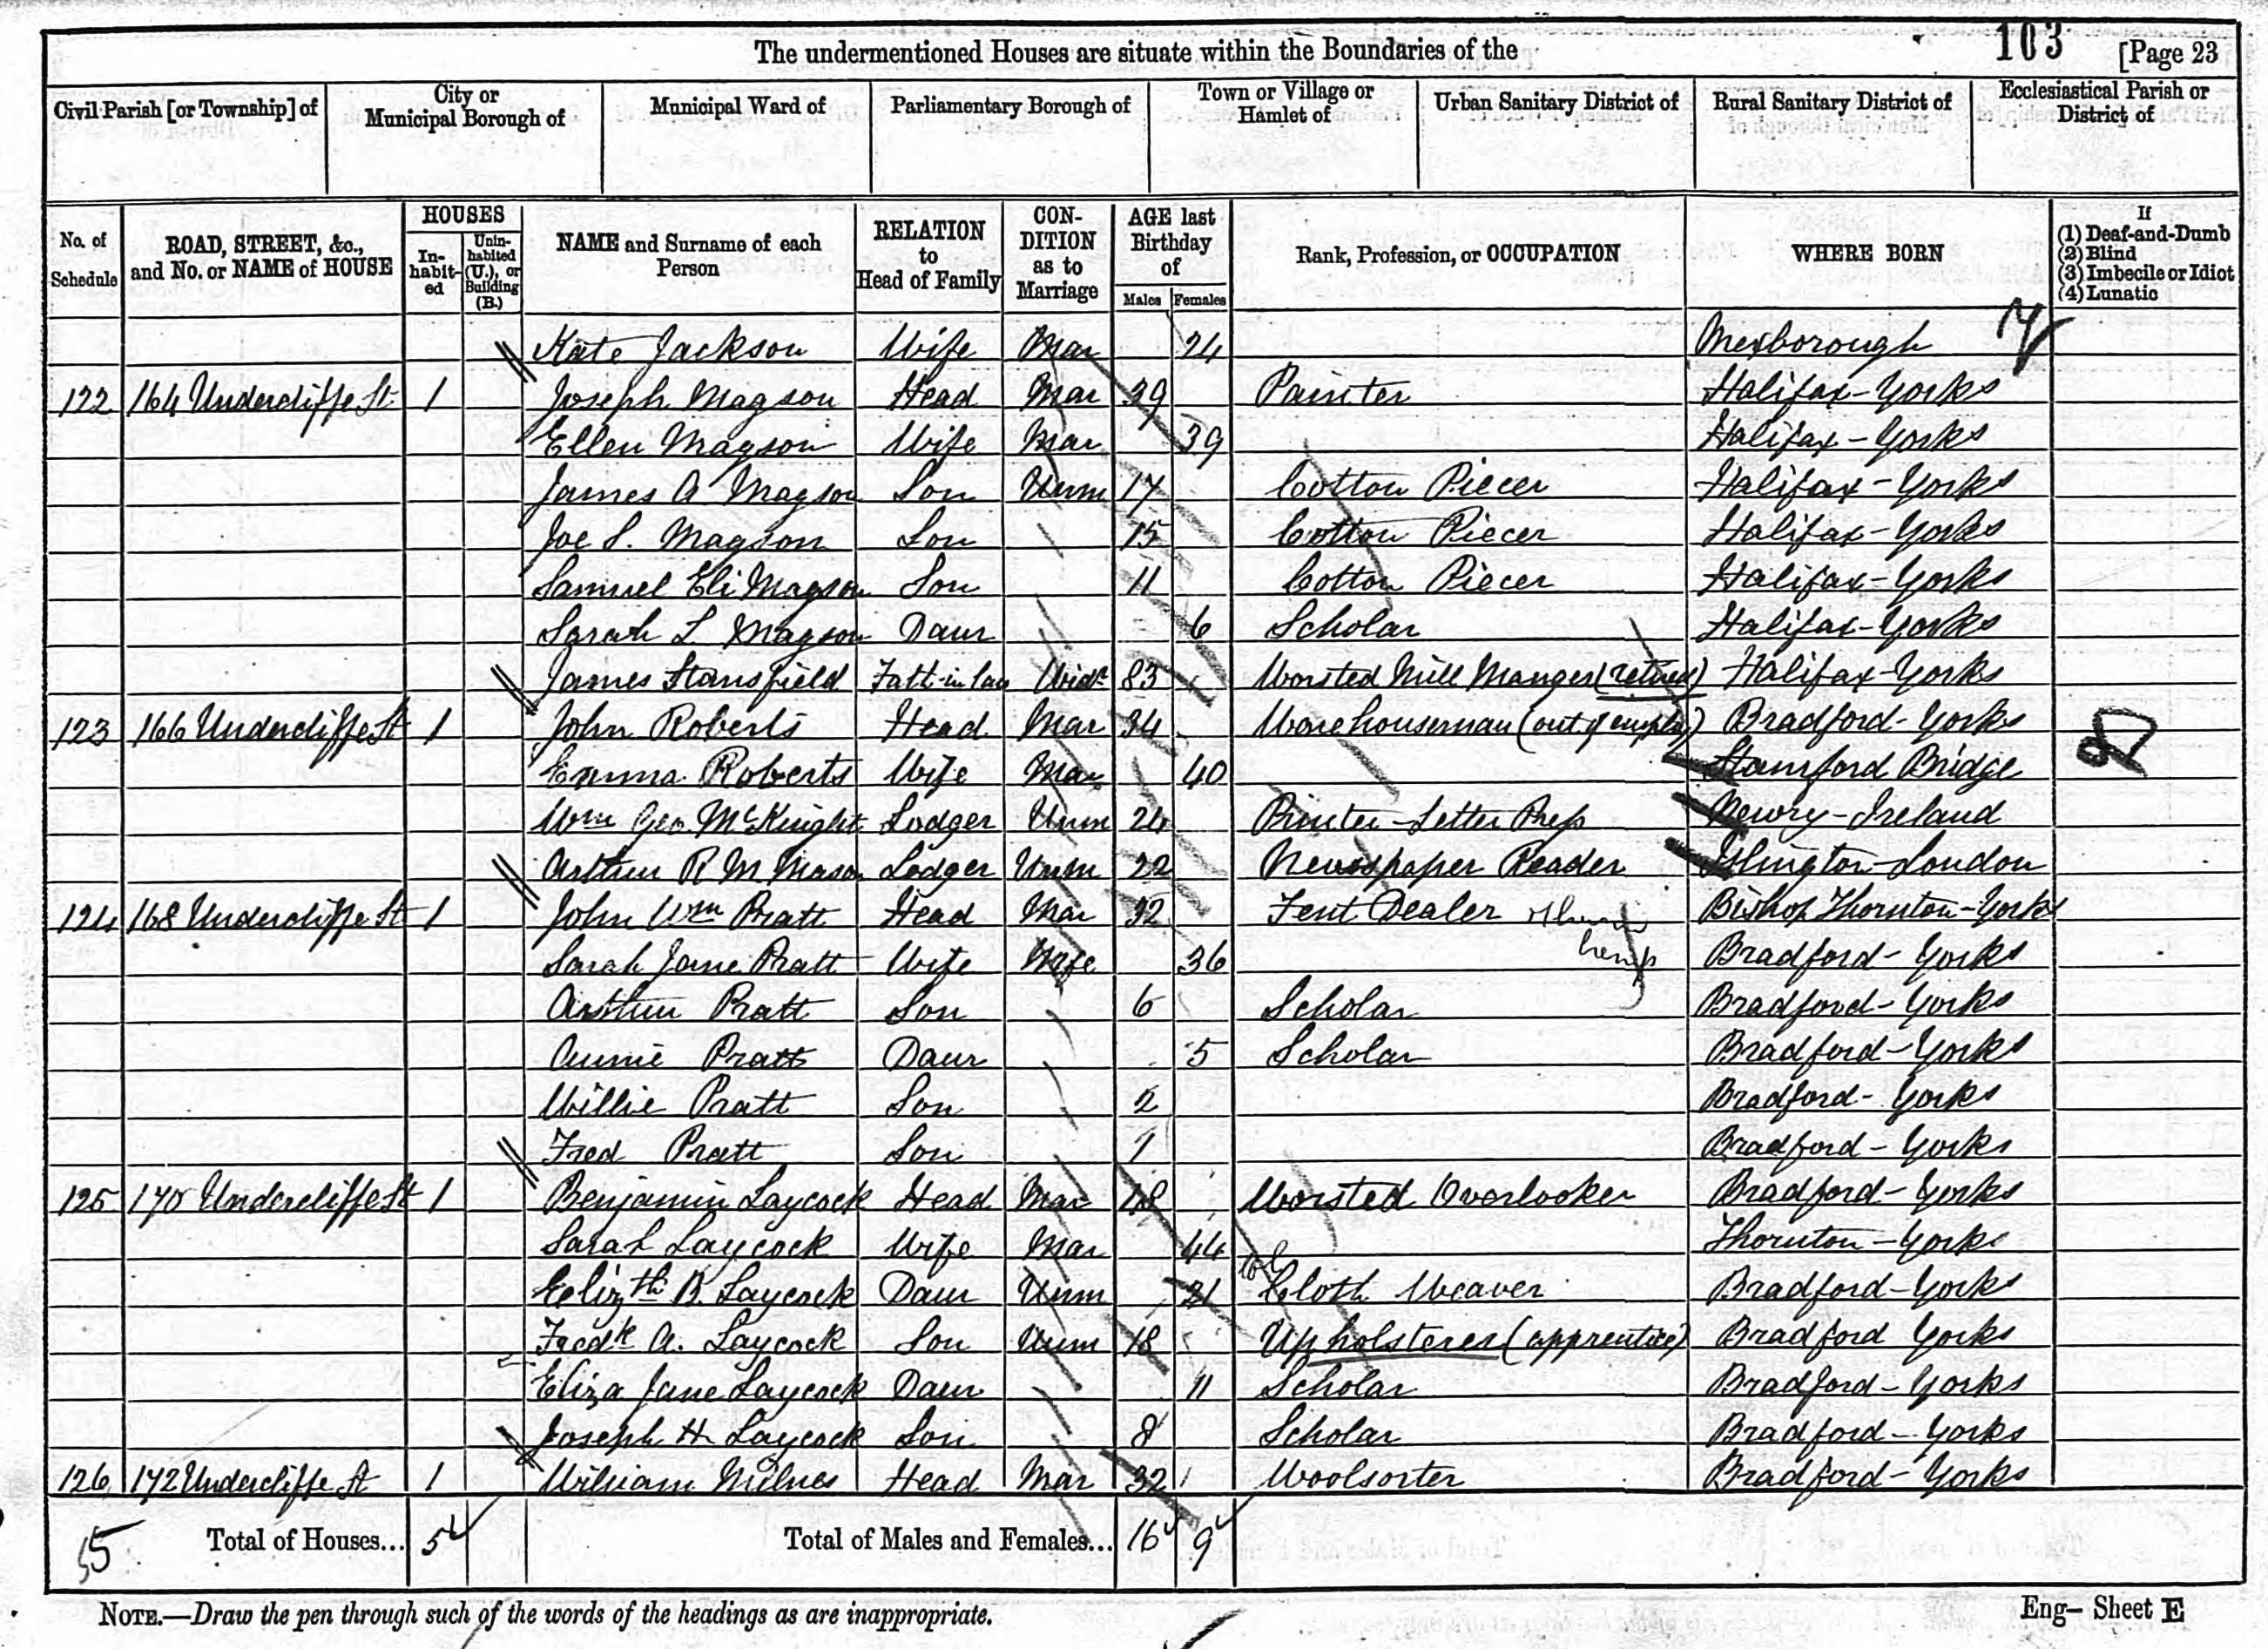 The undermentioned Houses are situate within the Boundaries of the 103 [Page 23
Civil Parish [or Township] of City or Municipal Borough of Municipal Ward of Parliamentary Borough of Town or Village or Hamlet of Urban Sanitary District of Rural Sanitary District of Ecclesiastical Parish or District of
No. of Schedule ROAD, STREET, &c., and No. or NAME of HOUSE HOUSES Inhabit-ed Unin-habited (U.), or Building (B.) NAME and Surname of each Person RELATION to Head of Family CON-DITION as to Marriage AGE last Birthday of Males Females Rank, Profession, or OCCUPATION WHERE BORN If (1) Deaf-and-Dumb (2) Blind (3) Imbecile or Idiot (4) Lunatic
Kate Jackson Wife Mar 24 Mexborough
122 164 Undercliffe St 1 Joseph Magson Head Mar 39 Painter Halifax - Yorks
Ellen Magson Wife Mar 39 Halifax - Yorks
James A Magson Son Unm 17 Cotton Piecer Halifax - Yorks
Joe S. Magson Son 15 Cotton Piecer Halifax - Yorks
Samuel Eli Magson Son 11 Cotton Piecer Halifax - Yorks
Sarah L Magson Daur 6 Scholar Halifax - Yorks
James Stansfield Fath-in law Widr 83 Worsted Mill Manger (retired) Halifax - Yorks
123 166 Undercliffe St 1 John Roberts Head Mar 34 Warehouseman (out of employ) Bradford - Yorks
Emma Roberts Wife Mar 40 Stamford Bridge
Wm Geo McKnight Lodger Unm 24 Printer - Letter Press Newry - Ireland
Arthur R M Mason Lodger Unm 22 Newspaper Reader Islington - London
124 168 Undercliffe St 1 John Wm Pratt Head Mar 32 Fent Dealer Bishop Thornton - Yorks
Sarah Jane Pratt Wife Wife 36 Bradford - Yorks
Arthur Pratt Son 6 Scholar Bradford - Yorks
Annie Pratt Daur 5 Scholar Bradford - Yorks
Willie Pratt Son 2 Bradford - Yorks
Fred Pratt Son 1 Bradford - Yorks
125 170 Undercliffe St 1 Benjamin Laycock Head Mar 48 Worsted Overlooker Bradford - Yorks
Sarah Laycock Wife Mar 44 Thornton - Yorks
Elizth B. Laycock Daur Unm 21 Cloth Weaver Bradford - Yorks
Fredk A. Laycock Son Unm 18 Upholsterer (apprentice) Bradford Yorks
Eliza Jane Laycock Daur 11 Scholar Bradford - Yorks
Joseph H Laycock Son 8 Scholar Bradford - Yorks
126 172 Undercliffe St 1 William Milnes Head Mar 32 Woolsorter Bradford - Yorks
5 Total of Houses... 5 Total of Males and Females... 16 9
NOTE.—Draw the pen through such of the words of the headings as are inappropriate.
Eng- Sheet E